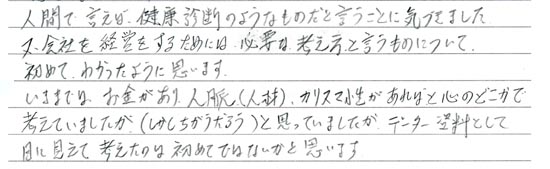 人間で言えば、健康診断のようなものだと言うことに気づきました
又、会社を経営をするためには、必要な考え方と言うものについて、
初めて、わかったように思います。
いままでは、お金があり、人脈(人材)、カリスマ性があればと心のどこかで
考えていましたが、(しかしちがうだろう)と思っていましたが、データー資料として
目に見えて考えたのは初めてではないかと思います